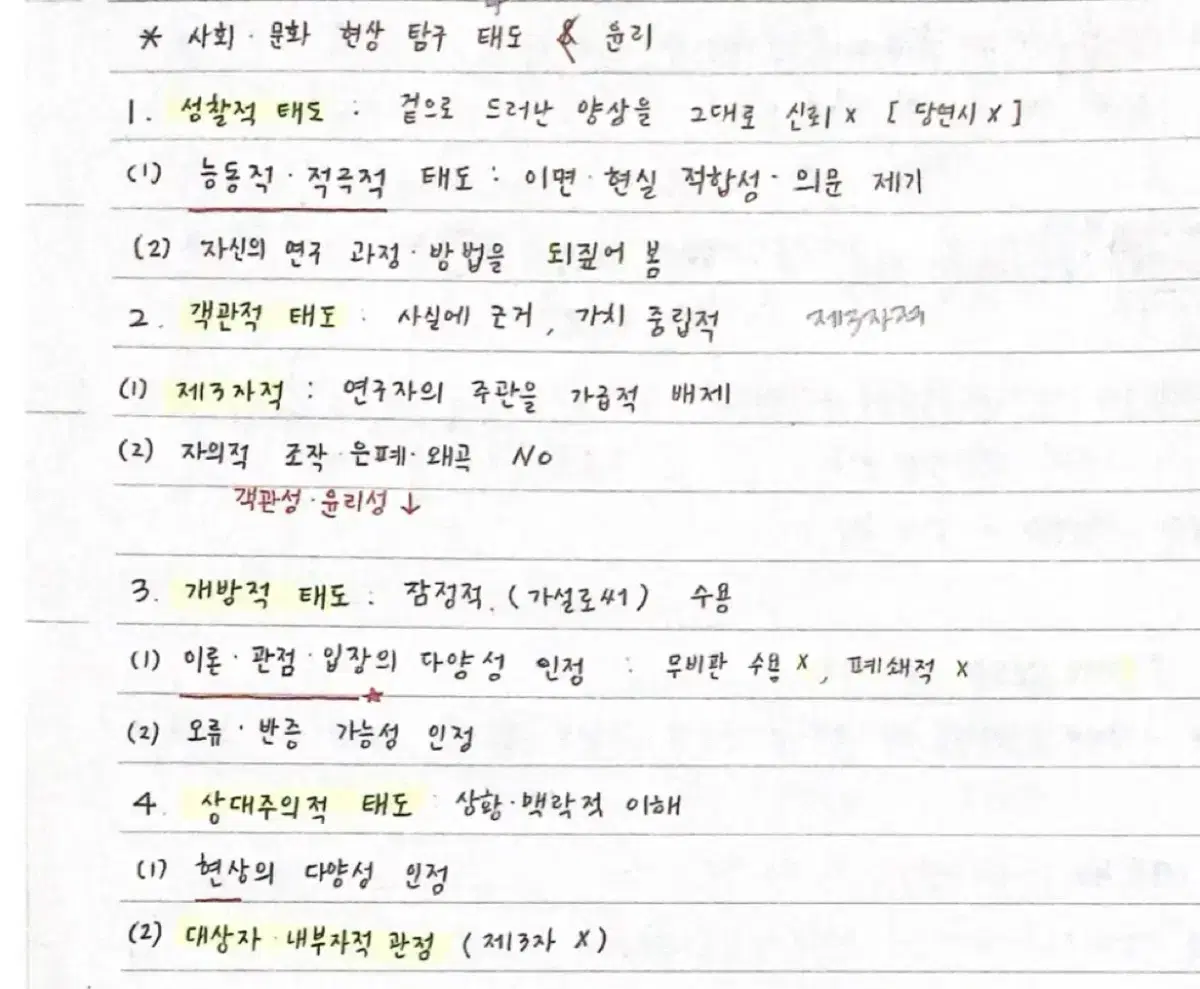 * 사회·문화 현상 탐구 태도 & 윤리
1. 성찰적 태도 : 겉으로 드러난 양상을 그대로 신뢰 x [ 당연시 x ]
(1) 능동적·적극적 태도 : 이면·현실 적합성·의문 제기
(2) 자신의 연구 과정·방법을 되짚어 봄
2. 객관적 태도 : 사실에 근거, 가치 중립적 제3자적
(1) 제3자적 : 연구자의 주관을 가급적 배제
(2) 자의적 조작·은폐·왜곡 No
객관성·윤리성 ↓
3. 개방적 태도 : 잠정적. (가설로써) 수용
(1) 이론·관점·입장의 다양성 인정 : 무비판 수용 x, 폐쇄적 x
(2) 오류·반증 가능성 인정
4. 상대주의적 태도 : 상황·맥락적 이해
(1) 현상의 다양성 인정
(2) 대상자·내부자적 관점 (제3자 x)